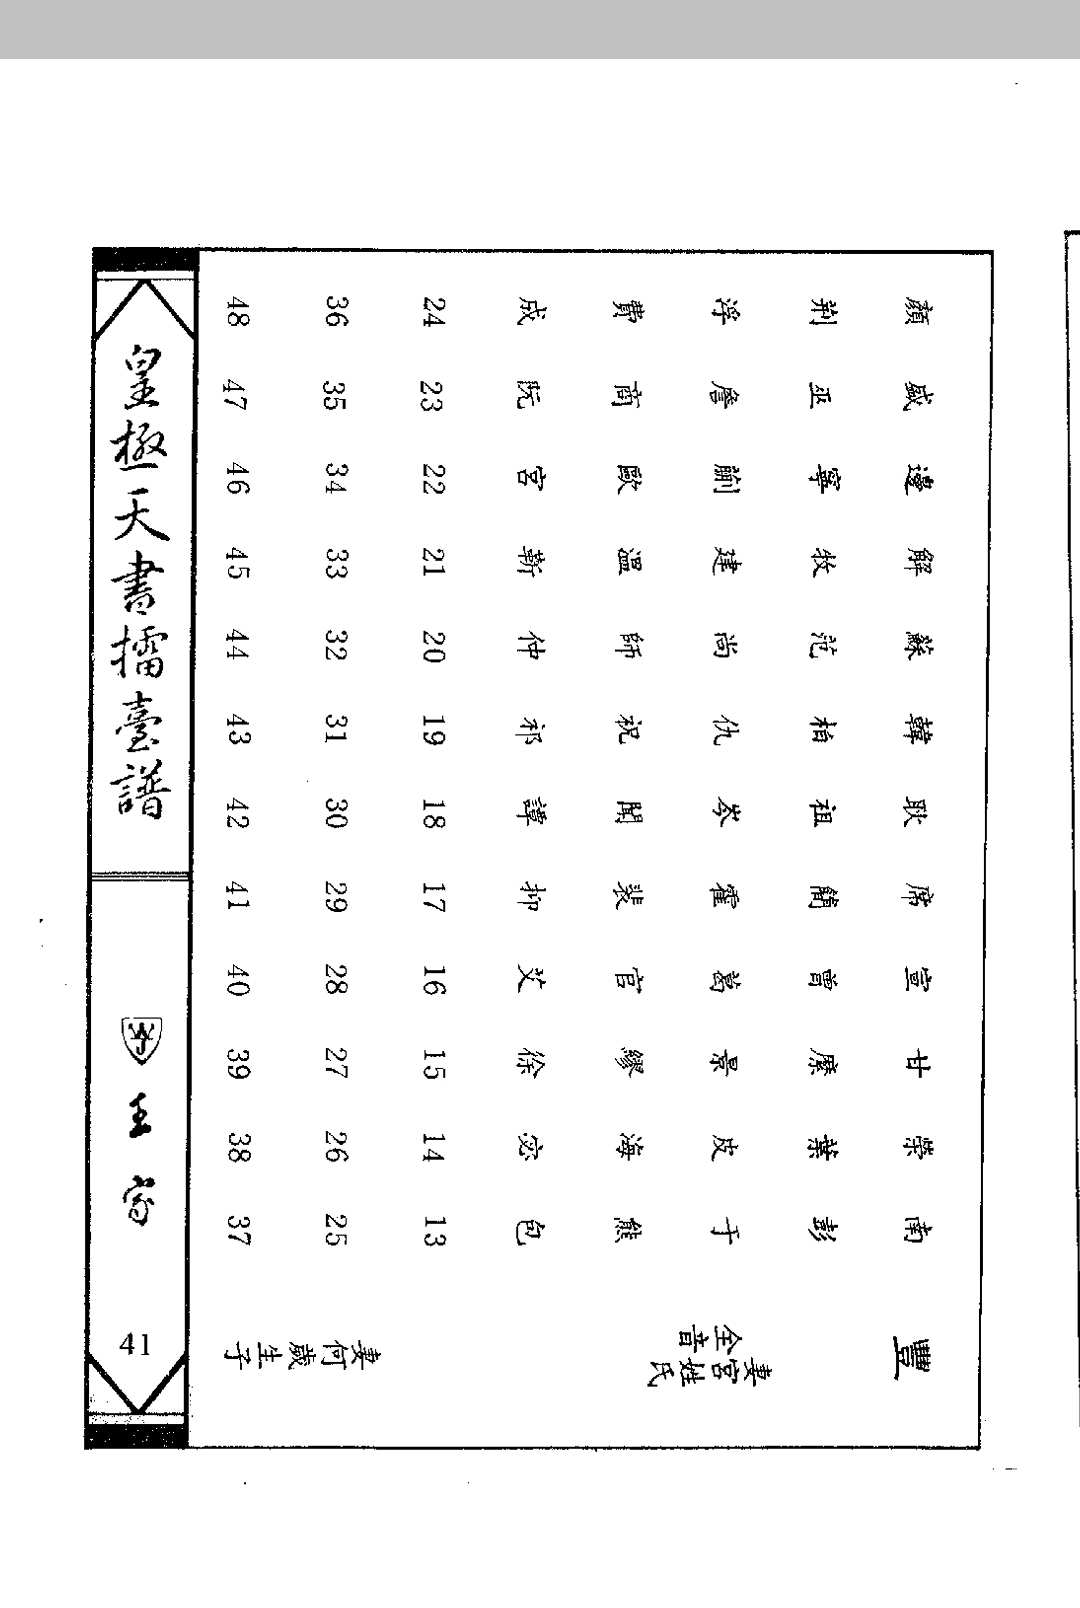 豐
妻宮姓氏
全音
妻何歲生子
南彭于熊包 13 25 37
榮葉皮海宓 14 26 38
甘縻景繆徐 15 27 39
宣曾葛官艾 16 28 40
席簡霍裴抑 17 29 41
耿祖岑聞譚 18 30 42
韓柏仇祝祁 19 31 43
蘇范尚師仲 20 32 44
解牧建溫靳 21 33 45
邊寧蒯歐宮 22 34 46
盛巫詹商阮 23 35 47
顏荊浮費成 24 36 48
皇極天書擂臺譜
王家
41